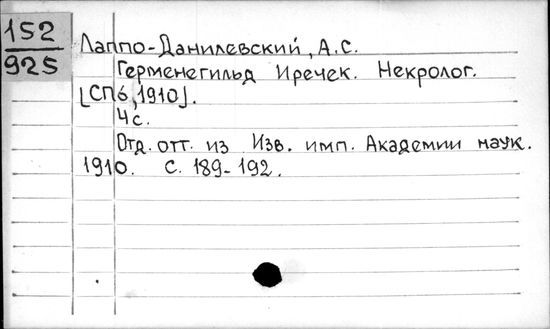 152
925
Лаппо-Данилевский, А.С.
Герменегильд Иречек. Некролог.
[СПб, 1910].
4с.
Отд. отт. из Изв. имп. Академии наук.
1910. С. 189-192.